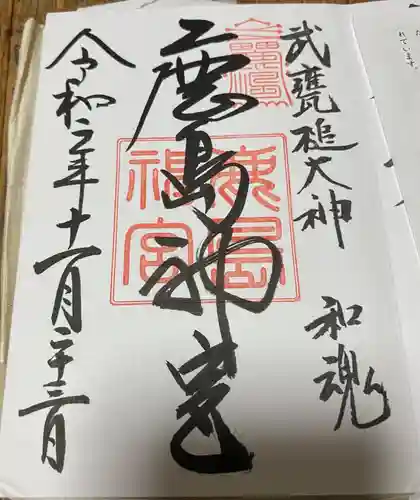 れています。
武甕槌大神
和魂
鹿島神宮
鹿島
神宮
令和二年十一月二十三日